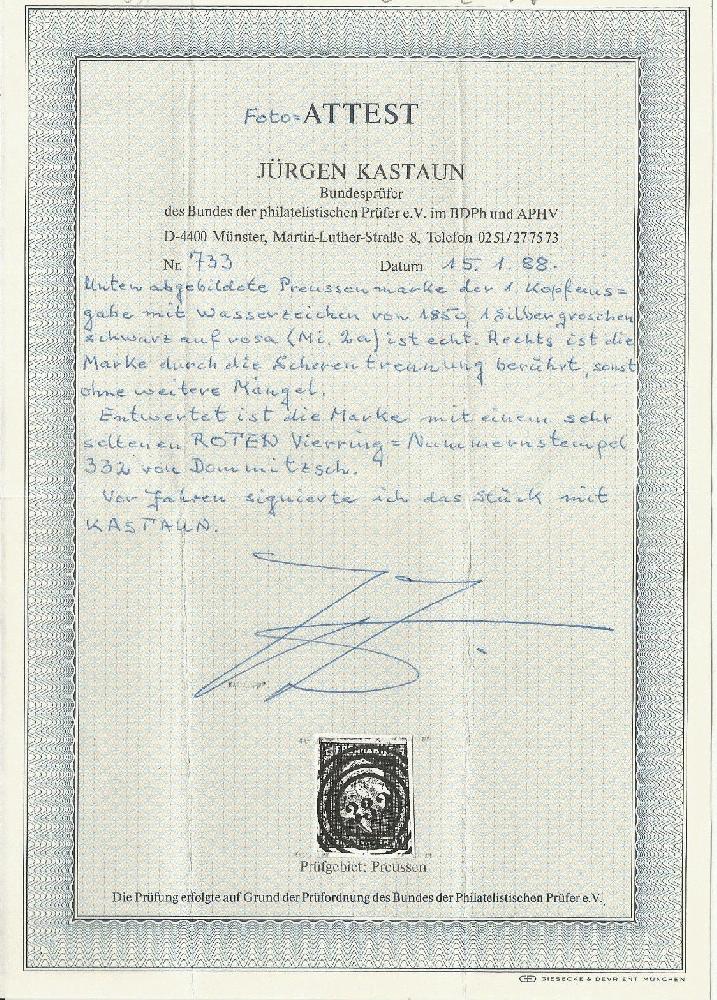 Foto=ATTEST
JÜRGEN KASTAUN
Bundesprüfer
des Bundes der philatelistischen Prüfer e.V. im BDPh und APHV
D-4400 Münster, Martin-Luther-Straße 8, Telefon 0251/277573
Nr. 733 Datum 15. 1. 88.
Unten abgebildete Preussenmarke der 1. Kopfaus=
gabe mit Wasserzeichen von 1850, 1 Silbergroschen
schwarz auf rosa (Mi. 2a) ist echt. Rechts ist die
Marke durch die Scherentrennung berührt, sonst
ohne weitere Mängel.
Entwertet ist die Marke mit einem sehr
seltenen ROTEN Vierring=Nummernstempel
332 von Dommitzsch.
Vor Jahren signierte ich das Stück mit
KASTAUN.
Prüfgebiet: Preussen
Die Prüfung erfolgte auf Grund der Prüfordnung des Bundes der Philatelistischen Prüfer e.V.
GIESECKE & DEVRIENT MÜNCHEN